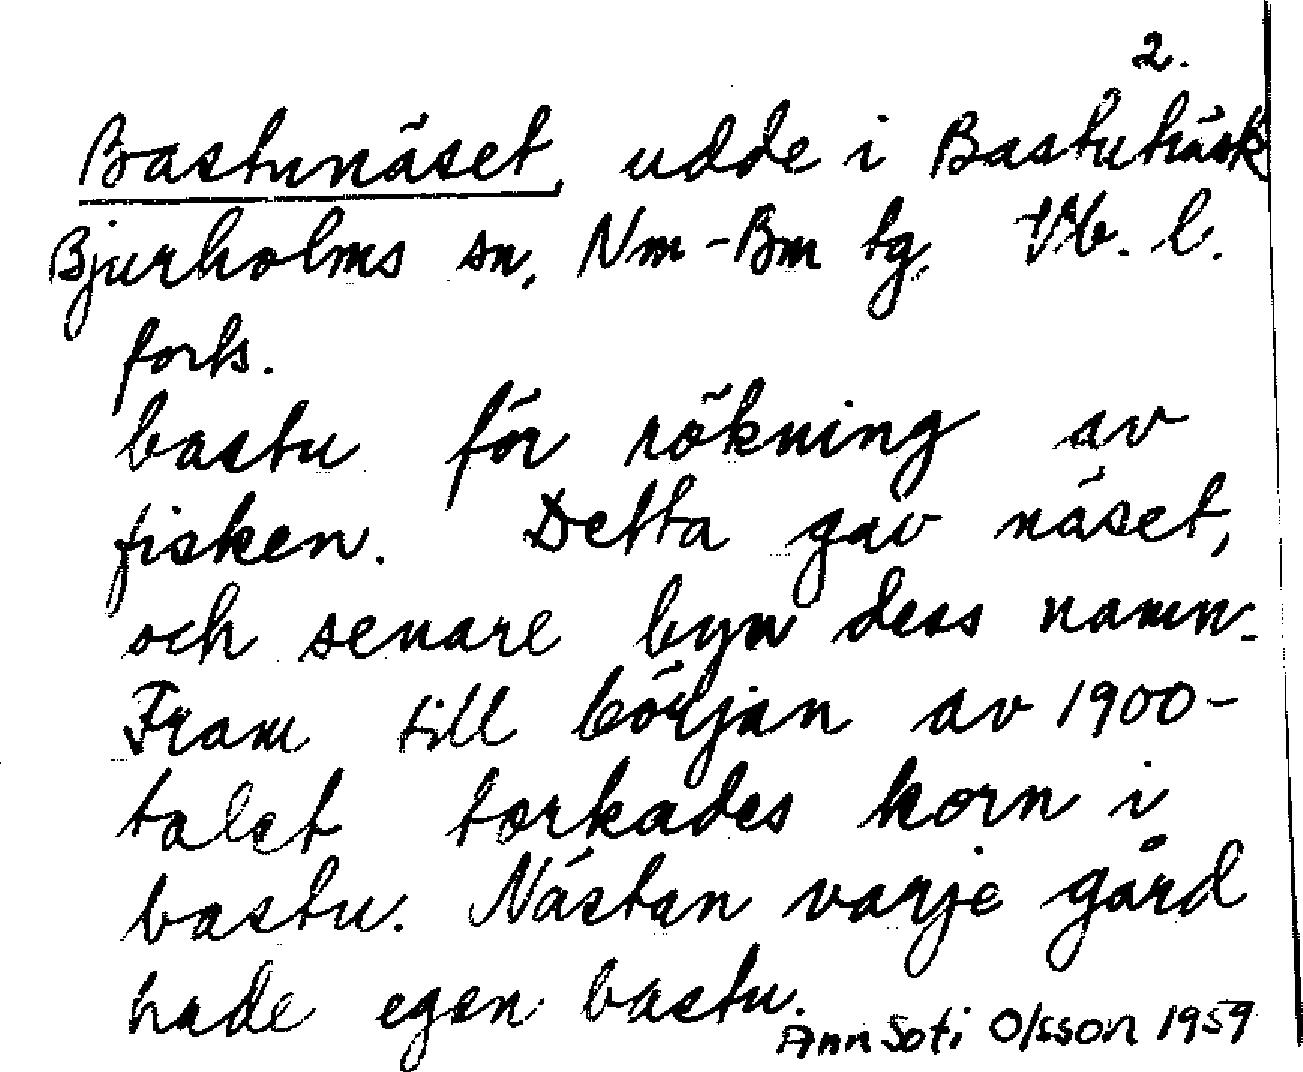 2.
Bastunäset, udde i Bastuträsk
Bjurholms sn, Nm-Bm tg, Vb. l.
forts.
bastu för rökning av
fisken. Detta gav näset,
och senare byn dess namn.
Fram till början av 1900-
talet torkades korn i
bastu. Nästan varje gård
hade egen bastu.
Ann Sofi Olsson 1959